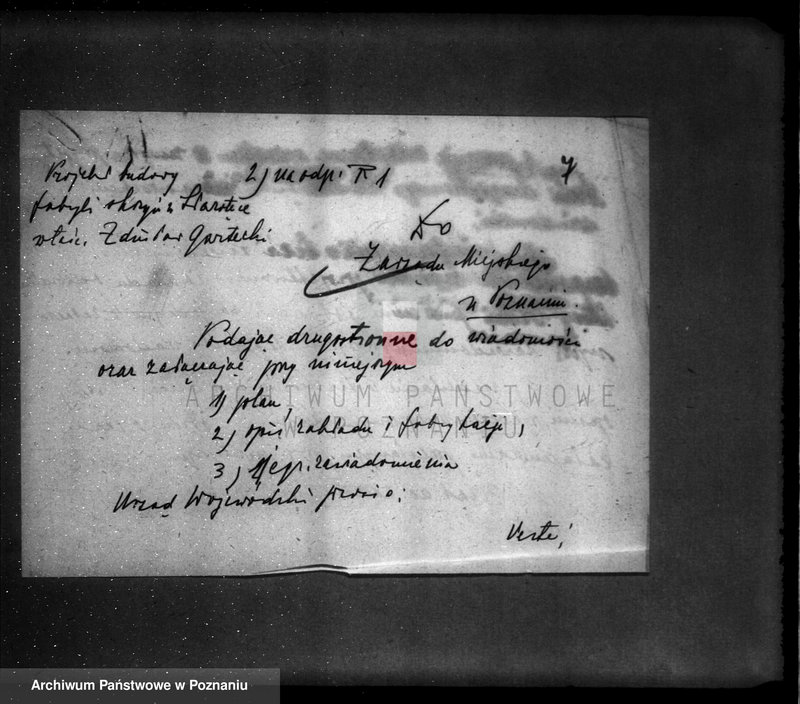 Projekt budowy 2) na odp. R 1 7
fabryki skrzyń z
właśc. Zdzisław
Do
Zarządu Miejskiego
w Poznaniu.
Podając drugostronne do wiadomości
oraz załączając przy niniejszym
1) plan,
2) opis zakładu i fabrykacji,
3) egz. zawiadomienia
Urząd Wojewódzki prosi o:
Verte!
ARCHIWUM PAŃSTWOWE
W POZNANIU
Archiwum Państwowe w Poznaniu